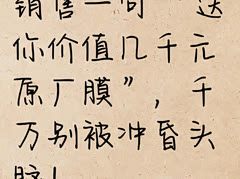 销售一句“送
你价值几千元
原厂膜”，千
万别被冲昏头
脑！